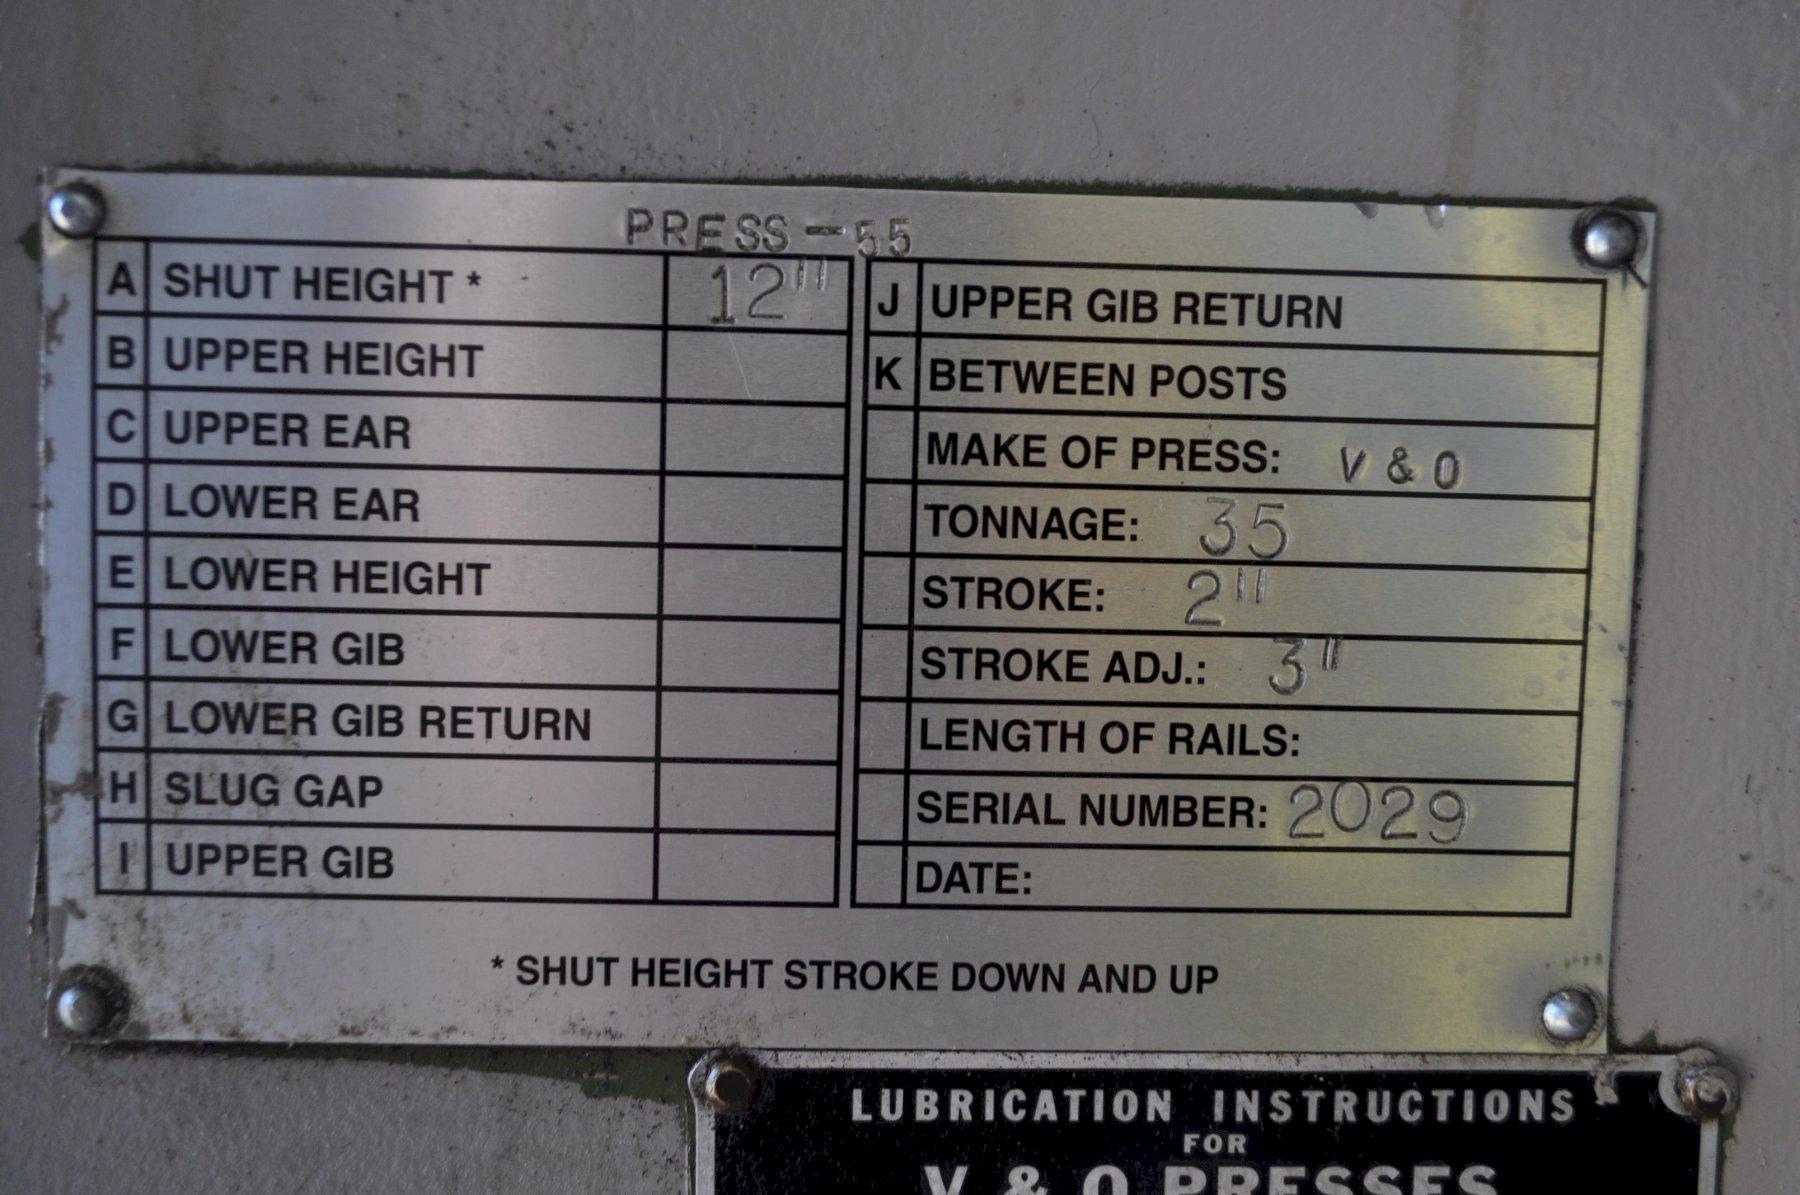 PRESS-55
A SHUT HEIGHT * 12"
B UPPER HEIGHT
C UPPER EAR
D LOWER EAR
E LOWER HEIGHT
F LOWER GIB
G LOWER GIB RETURN
H SLUG GAP
I UPPER GIB
J UPPER GIB RETURN
K BETWEEN POSTS
MAKE OF PRESS: V & O
TONNAGE: 35
STROKE: 2"
STROKE ADJ.: 3"
LENGTH OF RAILS:
SERIAL NUMBER: 2029
DATE:
* SHUT HEIGHT STROKE DOWN AND UP
LUBRICATION INSTRUCTIONS
FOR
V & O PRESSES